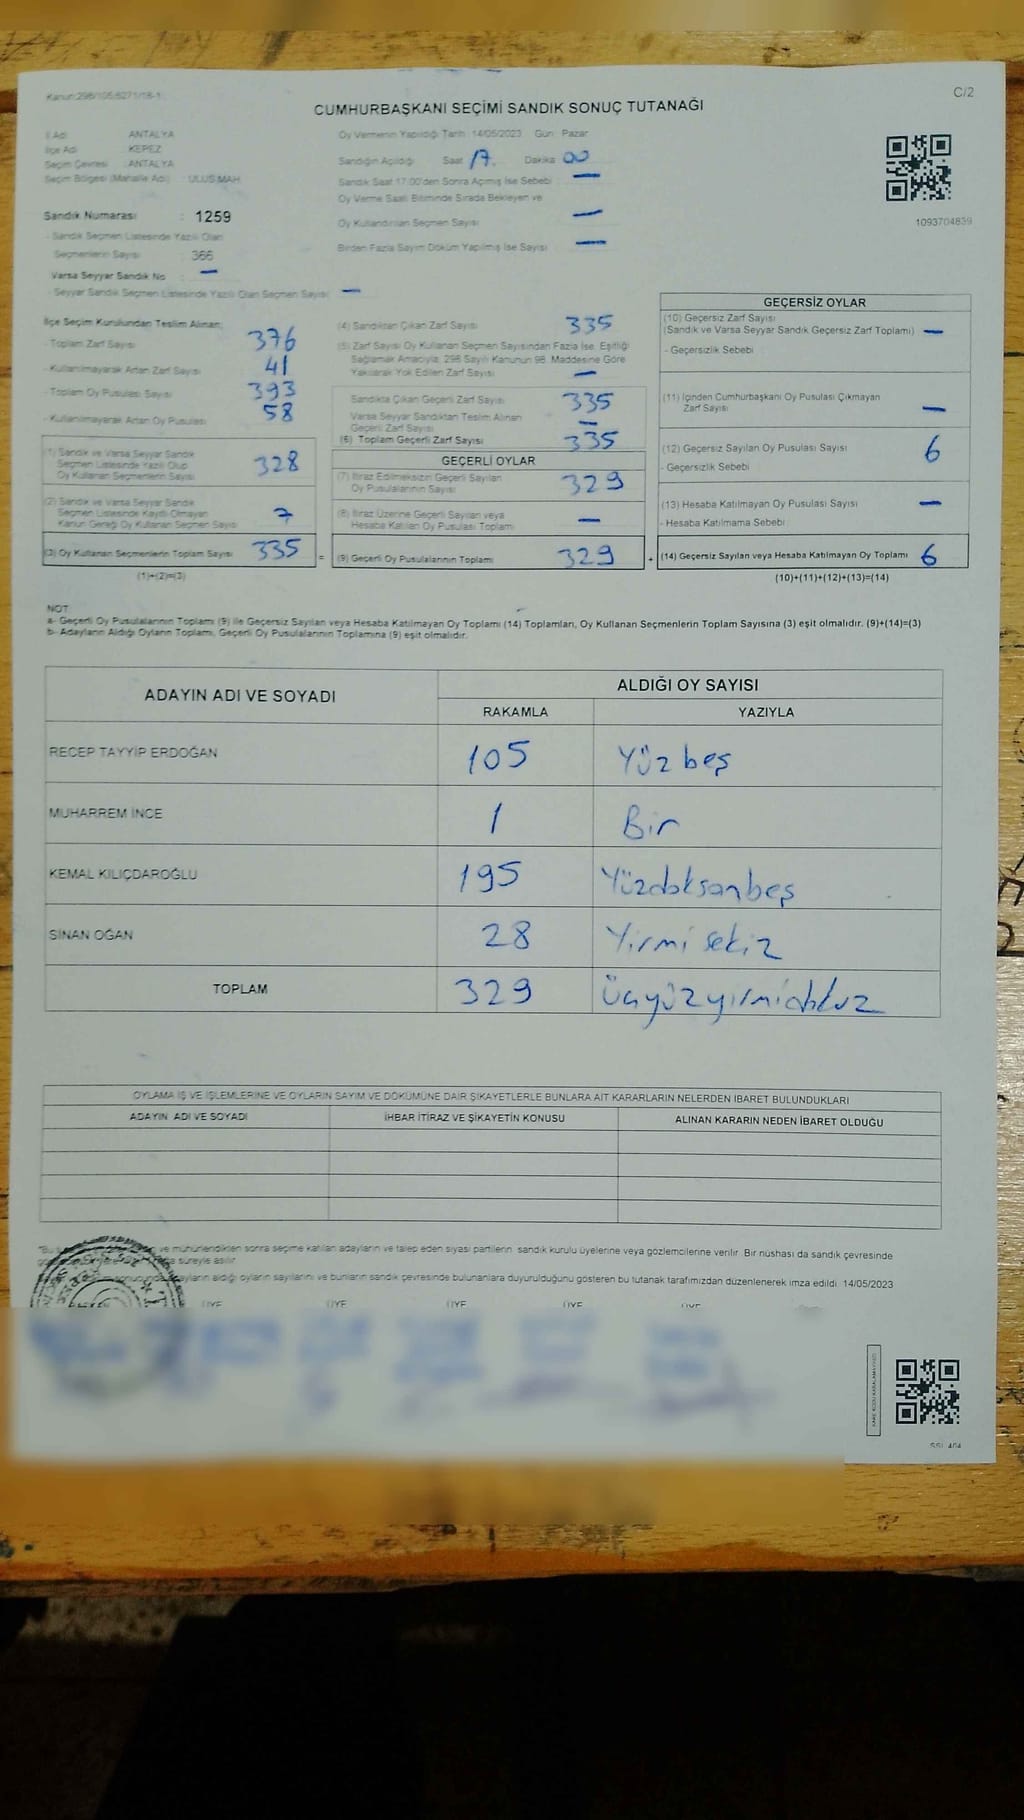 Kanun:298/105;6271/18-1
C/2
CUMHURBAŞKANI SEÇİMİ SANDIK SONUÇ TUTANAĞI
İl Adı ANTALYA
İlçe Adı KEPEZ
Seçim Çevresi : ANTALYA
Seçim Bölgesi (Mahalle Adı) : ULUS MAH.
Sandık Numarası : 1259
- Sandık Seçmen Listesinde Yazılı Olan
Seçmenlerin Sayısı : 366
Varsa Seyyar Sandık No : —
- Seyyar Sandık Seçmen Listesinde Yazılı Olan Seçmen Sayısı : —
Oy Vermenin Yapıldığı Tarih : 14/05/2023 Gün : Pazar
Sandığın Açıldığı Saat 17. Dakika 00
Sandık Saat 17:00'den Sonra Açılmış İse Sebebi —
Oy Verme Saati Bitiminde Sırada Bekleyen ve
Oy Kullandırılan Seçmen Sayısı —
Birden Fazla Sayım Döküm Yapılmış İse Sayısı —
1093704839
İlçe Seçim Kurulundan Teslim Alınan;
- Toplam Zarf Sayısı 376
- Kullanılmayarak Artan Zarf Sayısı 41
- Toplam Oy Pusulası Sayısı 393
- Kullanılmayarak Artan Oy Pusulası 58
(1) Sandık ve Varsa Seyyar Sandık
Seçmen Listesinde Yazılı Olup
Oy Kullanan Seçmenlerin Sayısı 328
(2) Sandık ve Varsa Seyyar Sandık
Seçmen Listesinde Kayıtlı Olmayan
Kanun Gereği Oy Kullanan Seçmen Sayısı 7
(3) Oy Kullanan Seçmenlerin Toplam Sayısı 335 =
(1)+(2)=(3)
(4) Sandıktan Çıkan Zarf Sayısı 335
(5) Zarf Sayısı Oy Kullanan Seçmen Sayısından Fazla İse, Eşitliği
Sağlamak Amacıyla, 298 Sayılı Kanunun 98. Maddesine Göre
Yakılarak Yok Edilen Zarf Sayısı —
Sandıkta Çıkan Geçerli Zarf Sayısı 335
Varsa Seyyar Sandıktan Teslim Alınan
Geçerli Zarf Sayısı —
(6) Toplam Geçerli Zarf Sayısı 335
GEÇERLİ OYLAR
(7) İtiraz Edilmeksizin Geçerli Sayılan
Oy Pusulalarının Sayısı 329
(8) İtiraz Üzerine Geçerli Sayılan veya
Hesaba Katılan Oy Pusulası Toplamı —
(9) Geçerli Oy Pusulalarının Toplamı 329 +
GEÇERSİZ OYLAR
(10) Geçersiz Zarf Sayısı
(Sandık ve Varsa Seyyar Sandık Geçersiz Zarf Toplamı) —
- Geçersizlik Sebebi
(11) İçinden Cumhurbaşkanı Oy Pusulası Çıkmayan
Zarf Sayısı —
(12) Geçersiz Sayılan Oy Pusulası Sayısı 6
- Geçersizlik Sebebi
(13) Hesaba Katılmayan Oy Pusulası Sayısı —
- Hesaba Katılmama Sebebi
(14) Geçersiz Sayılan veya Hesaba Katılmayan Oy Toplamı 6
(10)+(11)+(12)+(13)=(14)
NOT
a- Geçerli Oy Pusulalarının Toplamı (9) ile Geçersiz Sayılan veya Hesaba Katılmayan Oy Toplamı (14) Toplamları, Oy Kullanan Seçmenlerin Toplam Sayısına (3) eşit olmalıdır. (9)+(14)=(3)
b- Adayların Aldığı Oyların Toplamı, Geçerli Oy Pusulalarının Toplamına (9) eşit olmalıdır.
ADAYIN ADI VE SOYADI
ALDIĞI OY SAYISI
RAKAMLA YAZIYLA
RECEP TAYYİP ERDOĞAN 105 Yüzbeş
MUHARREM İNCE 1 Bir
KEMAL KILIÇDAROĞLU 195 Yüzdoksanbeş
SİNAN OĞAN 28 Yirmi sekiz
TOPLAM 329 Üçyüzyirmidokuz
OYLAMA İŞ VE İŞLEMLERİNE VE OYLARIN SAYIM VE DÖKÜMÜNE DAİR ŞİKAYETLERLE BUNLARA AİT KARARLARIN NELERDEN İBARET BULUNDUKLARI
ADAYIN ADI VE SOYADI İHBAR İTİRAZ VE ŞİKAYETİN KONUSU ALINAN KARARIN NEDEN İBARET OLDUĞU
ve mühürlendikten sonra seçime katılan adayların ve talep eden siyasi partilerin sandık kurulu üyelerine veya gözlemcilerine verilir. Bir nüshası da sandık çevresinde
süreyle asılır.
adayların aldığı oyların sayılarını ve bunların sandık çevresinde bulunanlara duyurulduğunu gösteren bu tutanak tarafımızdan düzenlenerek imza edildi. 14/05/2023
ÜYE ÜYE ÜYE ÜYE ÜYE